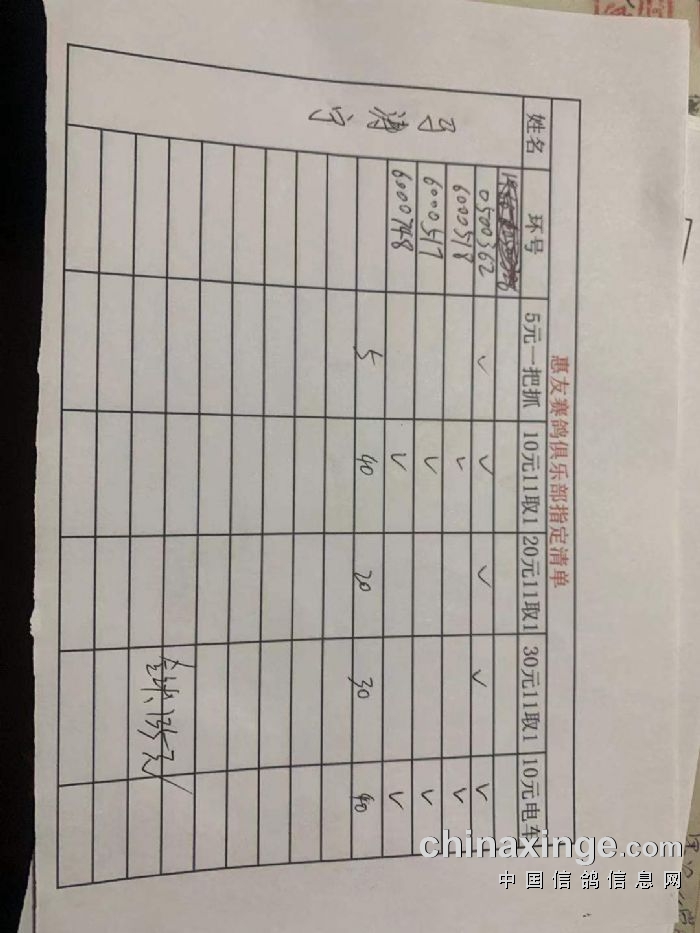 惠友赛鸽俱乐部指定清单
姓名 环号 5元一把抓 10元11取1 20元11取1 30元11取1 10元电车
0500362 ✓ ✓ ✓ ✓ ✓
6000518 ✓ ✓
6000517 ✓ ✓
6000748 ✓ ✓
5 40 20 30 40
chinaxinge.com
中国信鸽信息网